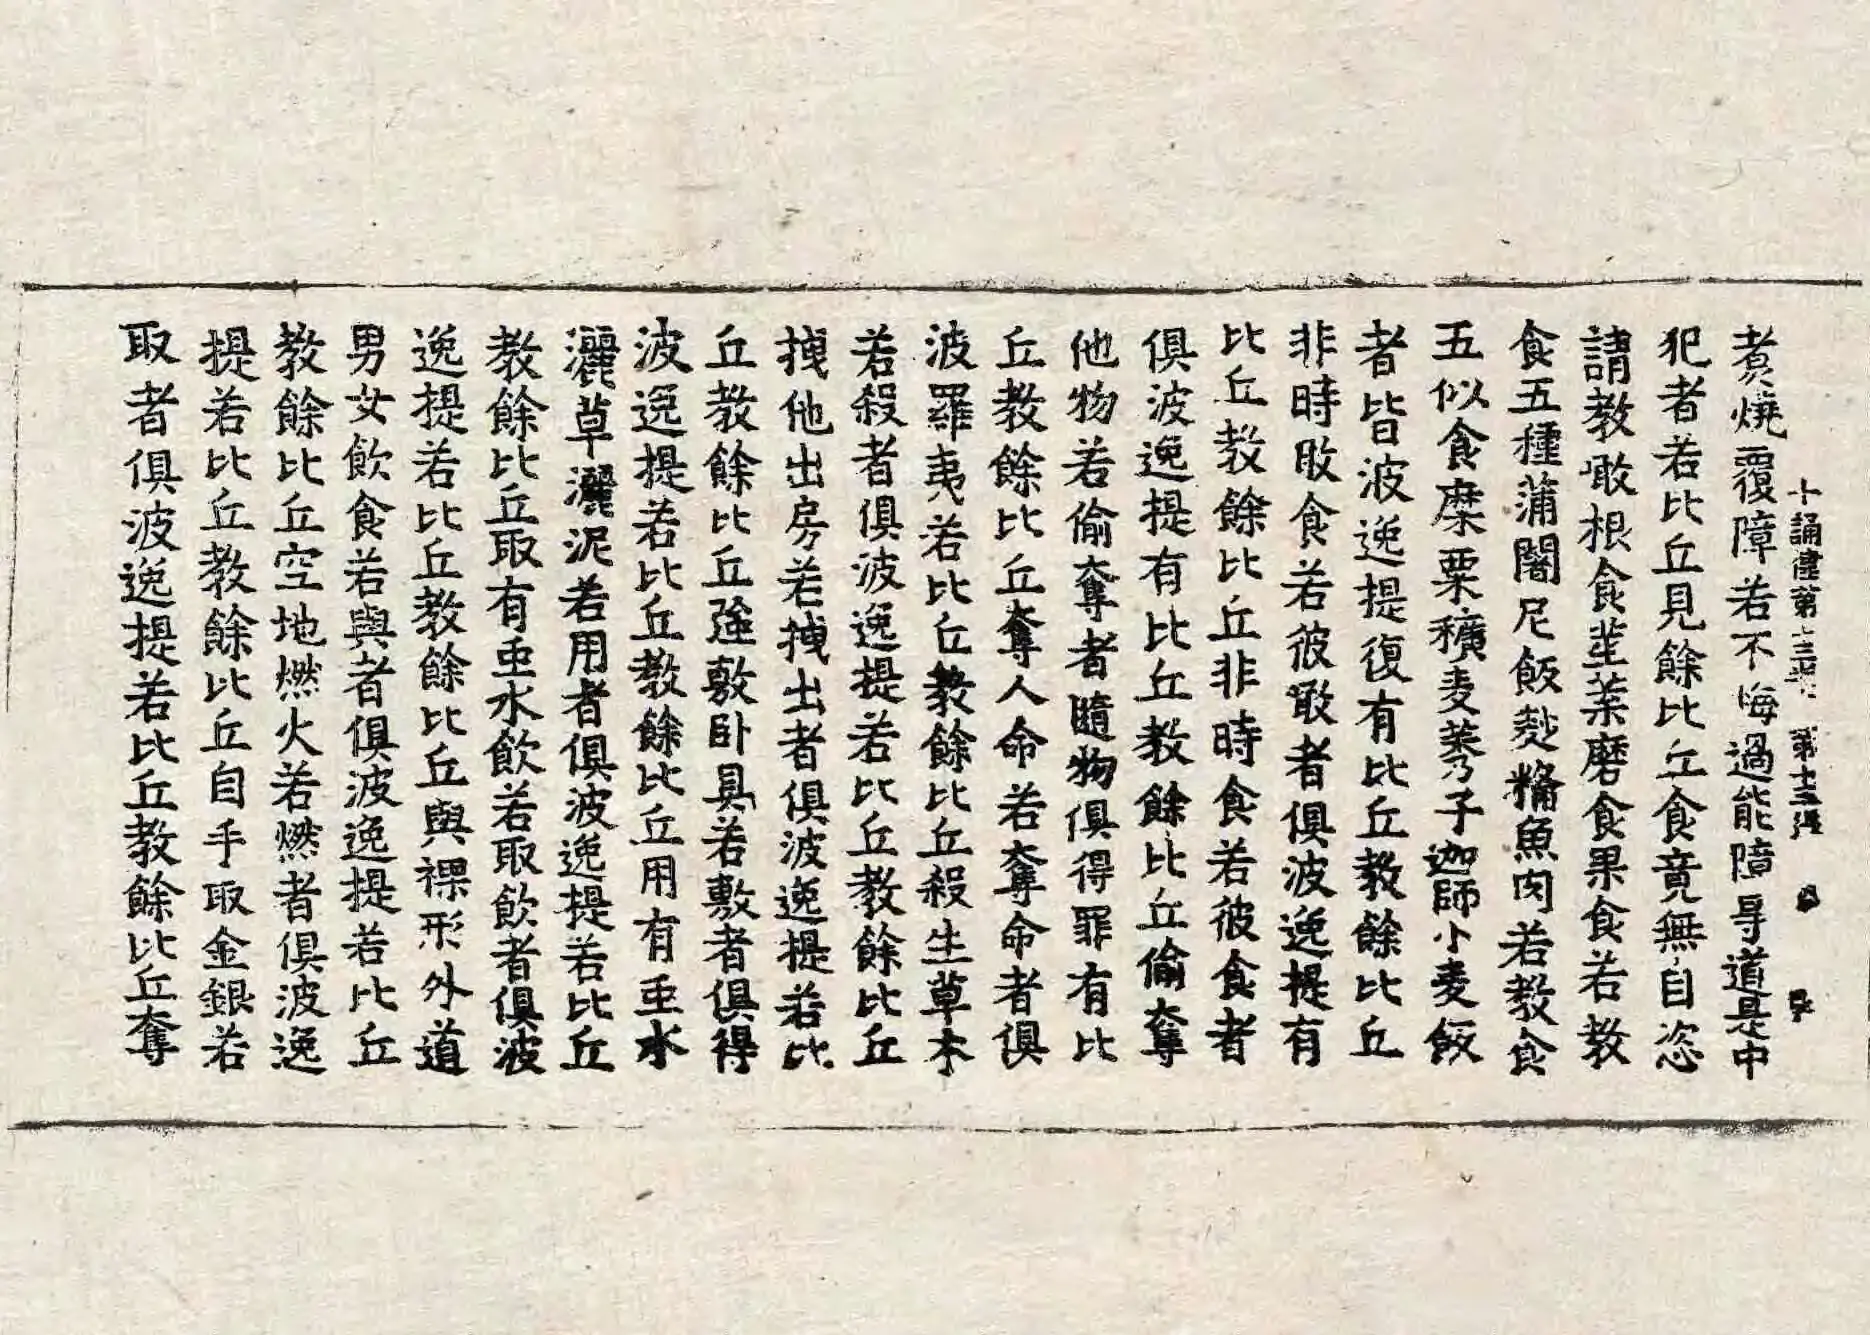 煑燒覆障若不悔過能障㝵道是中
犯者若比丘見餘比丘食竟無自恣
請教噉根食莖葉磨食果食若教
食五種蒲闍尼飯麨糒魚肉若教食
五似食糜粟穬麦莠子迦師小麦飯
者皆波逸提復有比丘教餘比丘
非時噉食若彼噉者俱波逸提有
比丘教餘比丘非時食若彼食者
俱波逸提有比丘教餘比丘偷奪
他物若偷奪者隨物俱得罪有比
丘教餘比丘奪人命若奪命者俱
波羅夷若比丘教餘比丘殺生草木
若殺者俱波逸提若比丘教餘比丘
拽他出房若拽出者俱波逸提若比
丘教餘比丘強敷卧具若敷者俱得
波逸提若比丘教餘比丘用有虫水
灑草灑泥若用者俱波逸提若比丘
教餘比丘取有虫水飲若取飲者俱波
逸提若比丘教餘比丘與裸形外道
男女飲食若與者俱波逸提若比丘
教餘比丘空地燃火若燃者俱波逸
提若比丘教餘比丘自手取金銀若
取者俱波逸提若比丘教餘比丘奪